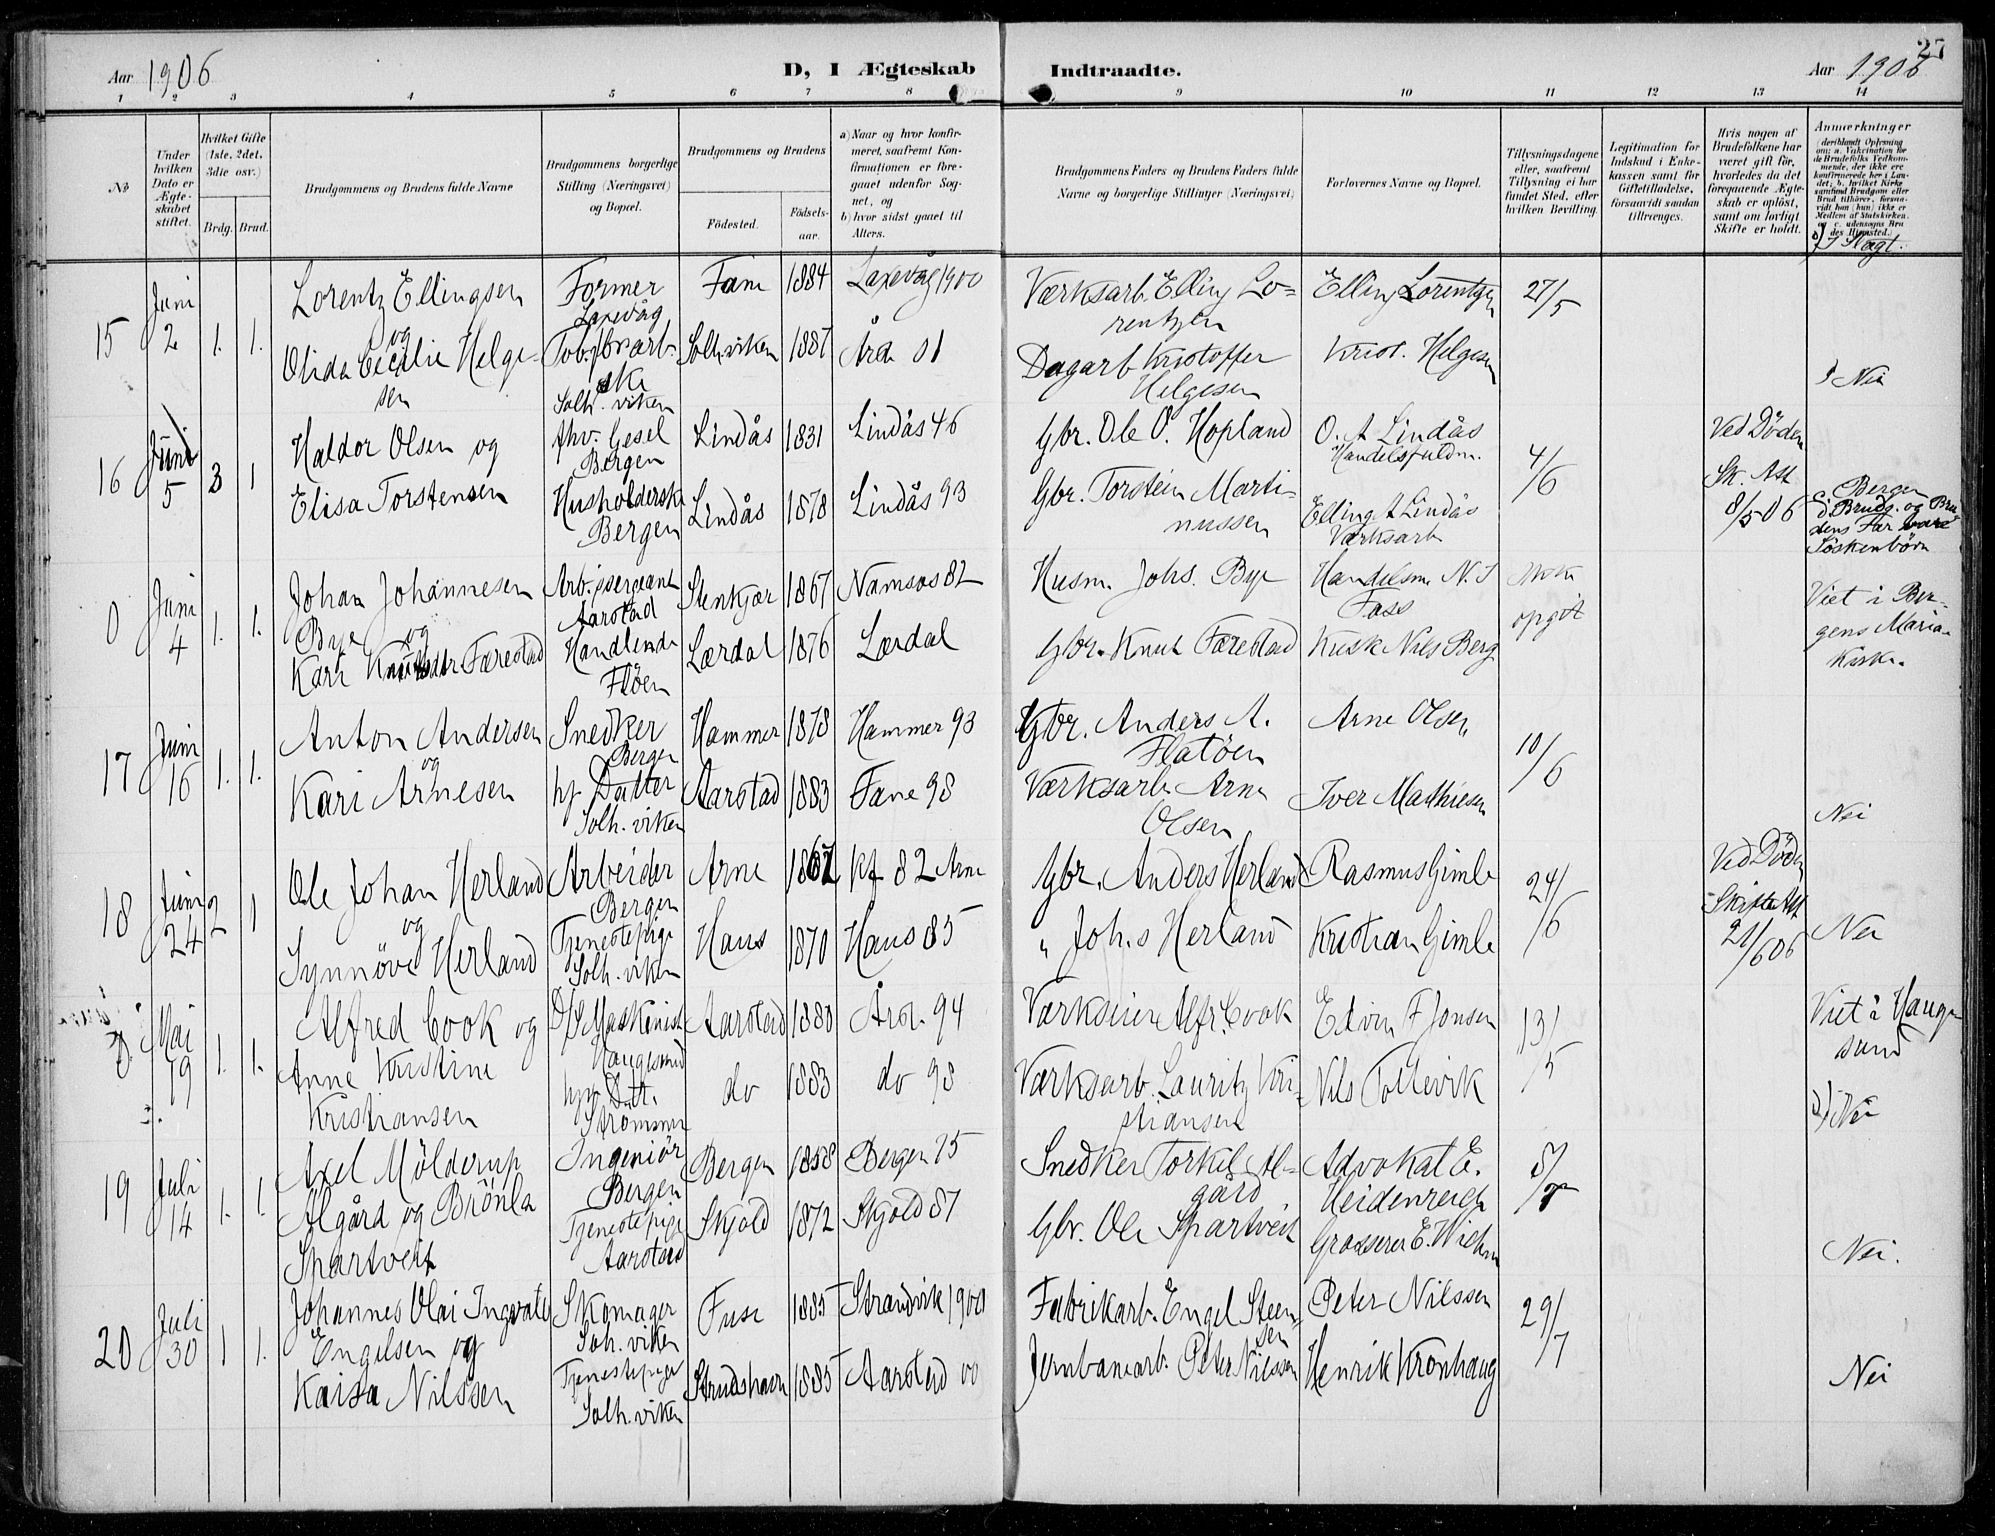 27
Aar 1906
D, I Ægteskab
Indtraadte.
Aar 1906
1 2 3 4 5 6 7 8 9 10 11 12 13 14
No
Under hvilken Dato er Ægteskabet stiftet.
Hvilket Gifte (1ste, 2det, 3die osv.)
Brdg. Brud.
Brudgommens og Brudens fulde Navne
Brudgommens borgerlige Stilling (Næringsvei) og Bopæl.
Brudgommens og Brudens
Fødested.
Fødselsaar.
a) Naar og hvor konfirmeret, saafremt Konfirmationen er foregaaet udenfor Sognet, og
b) hvor sidst gaaet til Alters.
Brudgommens Faders og Brudens Faders fulde Navne og borgerlige Stillinger (Næringsvei)
Forlovernes Navne og Bopæl.
Tillysningsdagene eller, saafremt Tillysning ei har fundet Sted, efter hvilken Bevilling.
Legitimation for Indskud i Enkekassen samt for Giftetilladelse, forsaavidt saadan tiltrænges.
Hvis nogen af Brudefolkene har været gift før, hvorledes da det foregaaende Ægteskab er opløst, samt om lovligt Skifte er holdt.
Anmærkninger
(deriblandt Oplysning om: a. Vakcination for de Brudefolks Vedkommende, der ikke ere konfirmerede her i Landet; b. hvilket Kirkesamfund Brudgom eller Brud tilhører, forsaavidt han (hun) ikke er Medlem af Statskirken. c. udensogns Brudes Hjemsted.)
d) I Slægt.
15 Juni 2 1. 1. Lorentz Ellingsen Former Laxevåg Fane 1884 Laxevåg 1900 Værksarb. Elling Lorentzen Elling Lorentzen 27/5
og
Olida Cecilie Helgesen Tob.fbrarbske Solh. viken Solh.viken 1887 Års 01 Dagarb Kristoffer Helgesen Krist. Helgesen Nei
16 Juni 5 3 1 Haldor Olsen og Bergen Lindås 1831 Lindås 46 Gbr. Ole O. Hopland O. A Lindås Handelsfuldm. 4/6 Ved Døden
Elisa Torstensen Husholderske Bergen Lindås 1878 Lindås 93 Gbr. Torstein Martinussen Elling A Lindås Værksarb Sk. Att 8/5 06 c. Bergen
d. Brudg. og Brudens Far vare Söskenbörn
0 Juni 4 1. 1. Johan Johannesen Bye og Aarstad Stenkjær 1867 Namsos 82 Husm. Johs. Bye Handelsm. N. J Fass opgit Viet i Bergens Mariakirke.
Kari Færestad Handlende Flöen Lærdal 1876 Lærdal Gbr. Knut Færestad Kusk Nils Berg
17 Juni 16 1. 1. Anton Andersen Snedker Bergen Hammer 1878 Hammer 93 Gbr. Anders A. Flatöen Arne Olsen 10/6
og
Kari Arnesen hj Datter Solh. viken Aarstad 1883 Fane 98 Værksarb. Arne Olsen Iver Mathiesen Nei
18 Juni 24 2 1 Ole Johan Herland Arbeider Bergen Arne 1867 kf 82 Arne Gbr. Anders Herland Rasmus Gimle 24/6 Ved Döden
og
Synnöve Herland Tjenestepige Solh. viken Haus 1870 Haus 85 " Johs Herland Kristian Gimle Skifte Att 21/6 06 Nei
0 Mai 19 1. 1. Alfred Cook og D/S Maskinist Haugesund Aarstad 1880 Års. 94 Værkseier Alfr. Cook Edvin F Jonsen 13/5 Viet i Haugesund
Anne Kristine Kristiansen hjv Dat. Strømmen do 1883 do 98 Værksarb. Lauritz Kristiansen Nils Tollevik d) Nei
19 Juli 14 1. 1. Axel Mölderup Algård og Brönla Spartveit Ingeniör Bergen Bergen 1858 Bergen 75 Snedker Torkil Algård Advokat E. Heidenreich 8/7
Tjenestepige Aarstad Skjold 1872 Skjold 87 Gbr. Ole Spartveit Grosserer E. Nei.
20 Juli 30 1 1. Johannes Olai Ingvald Engelsen og Skomager Solh. viken Fuse 1885 Strandvik 1900 Fabrikarb. Engel Steensen Peter Nilssen 29/7
Kaisa Nilssen Tjenestepige Solh. viken Strudshavn 1885 Aarstad 00 Jernbanearb. Peter Nilssen Henrik Kronhaug Nei